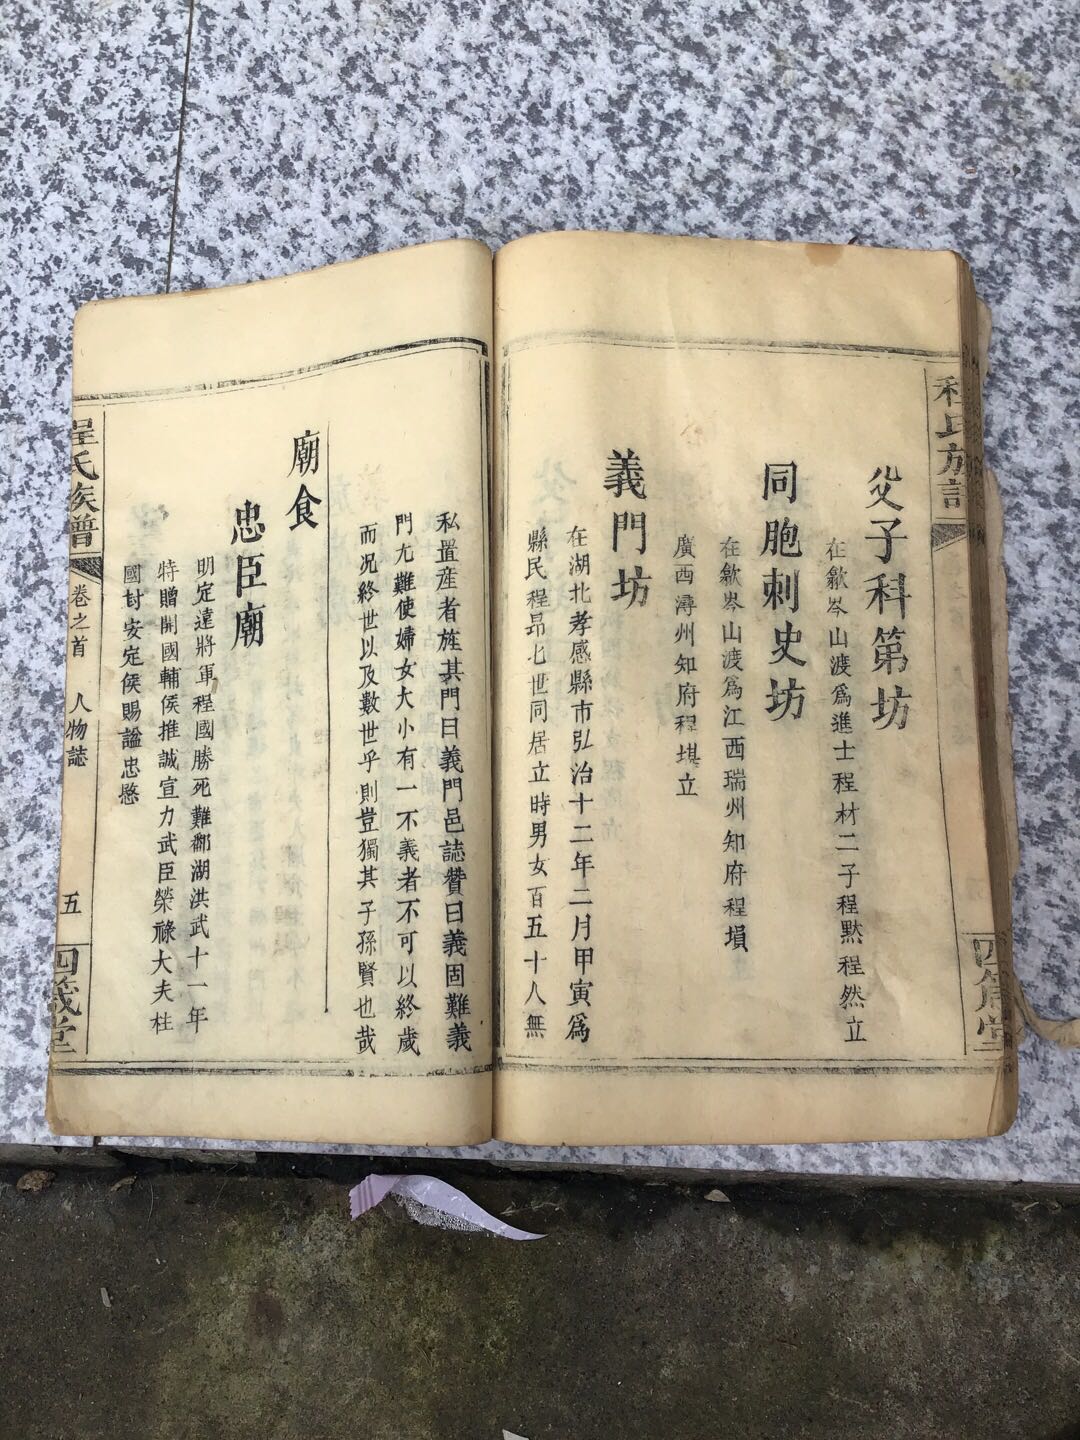 程氏族譜
四箴堂
父子科第坊
在歙岑山渡爲進士程材二子程默程然立
同胞刺史坊
在歙岑山渡爲江西瑞州知府程塤
廣西潯州知府程堪立
義門坊
在湖北孝感縣市弘治十二年二月甲寅爲
縣民程昻七世同居立時男女百五十人無
私置産者旌其門曰義門邑誌贊曰義固難義
門尢難使婦女大小有一不義者不可以終歲
而况終世以及數世乎則豈獨其子孫賢也哉
廟食
忠臣廟
明定遠將軍程國勝死難鄱湖洪武十一年
特贈開國輔侯推誠宣力武臣榮祿大夫柱
國封安定侯賜謚忠愍
程氏族譜
卷之首
人物誌
五
四箴堂